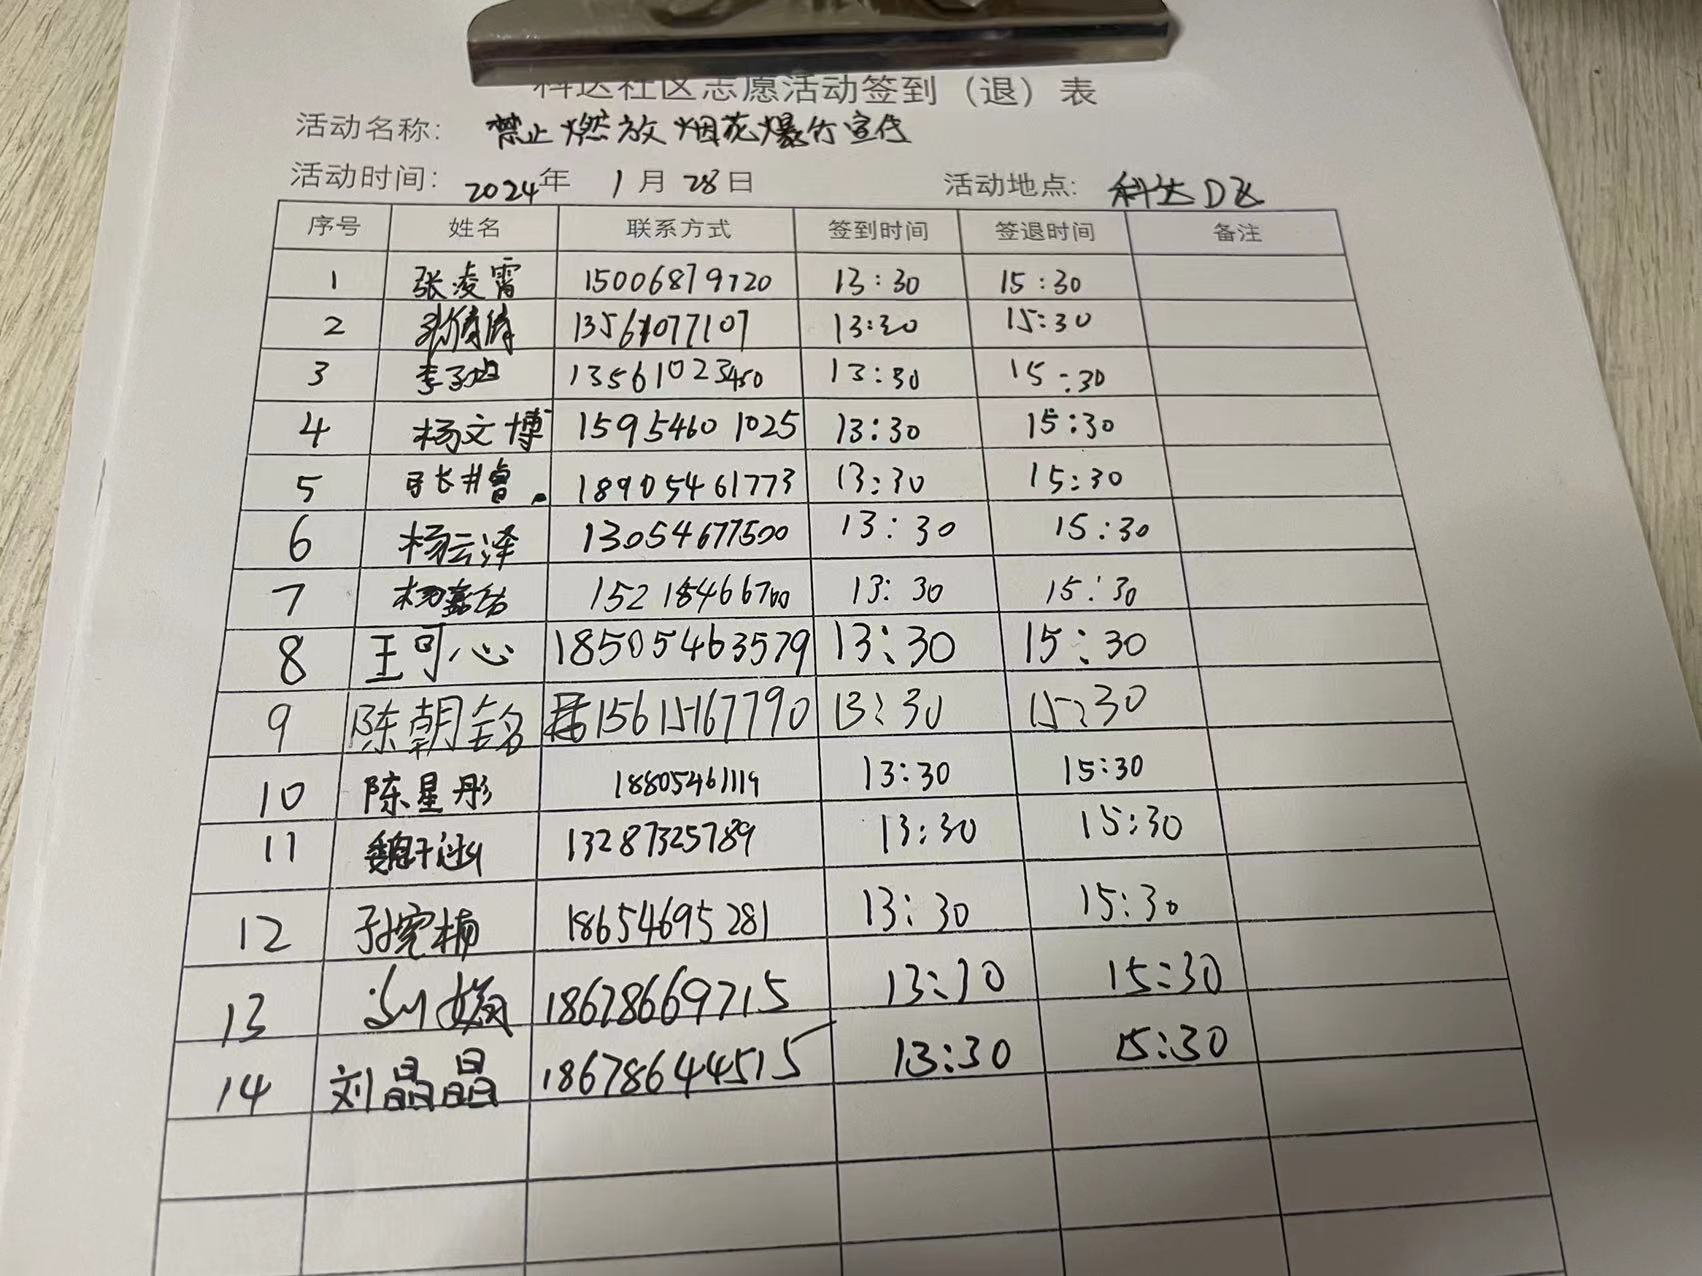 科达社区志愿活动签到（退）表
活动名称： 禁止燃放烟花爆竹宣传
活动时间： 2024年 1月28日 活动地点: 科达D区
序号 姓名 联系方式 签到时间 签退时间 备注
1 张凌霄 15006879720 13:30 15:30
2 13561077107 13:30 15:30
3 13561023450 13:30 15:30
4 杨文博 15954601025 13:30 15:30
5 18905461773 13:30 15:30
6 杨云泽 13054677500 13:30 15:30
7 15218466700 13:30 15:30
8 王可心 18505463579 13:30 15:30
9 陈朝铭 15615167790 13:30 15:30
10 陈星彤 18805461119 13:30 15:30
11 13287325789 13:30 15:30
12 18654695281 13:30 15:30
13 18678669715 13:30 15:30
14 刘晶晶 18678644515 13:30 15:30